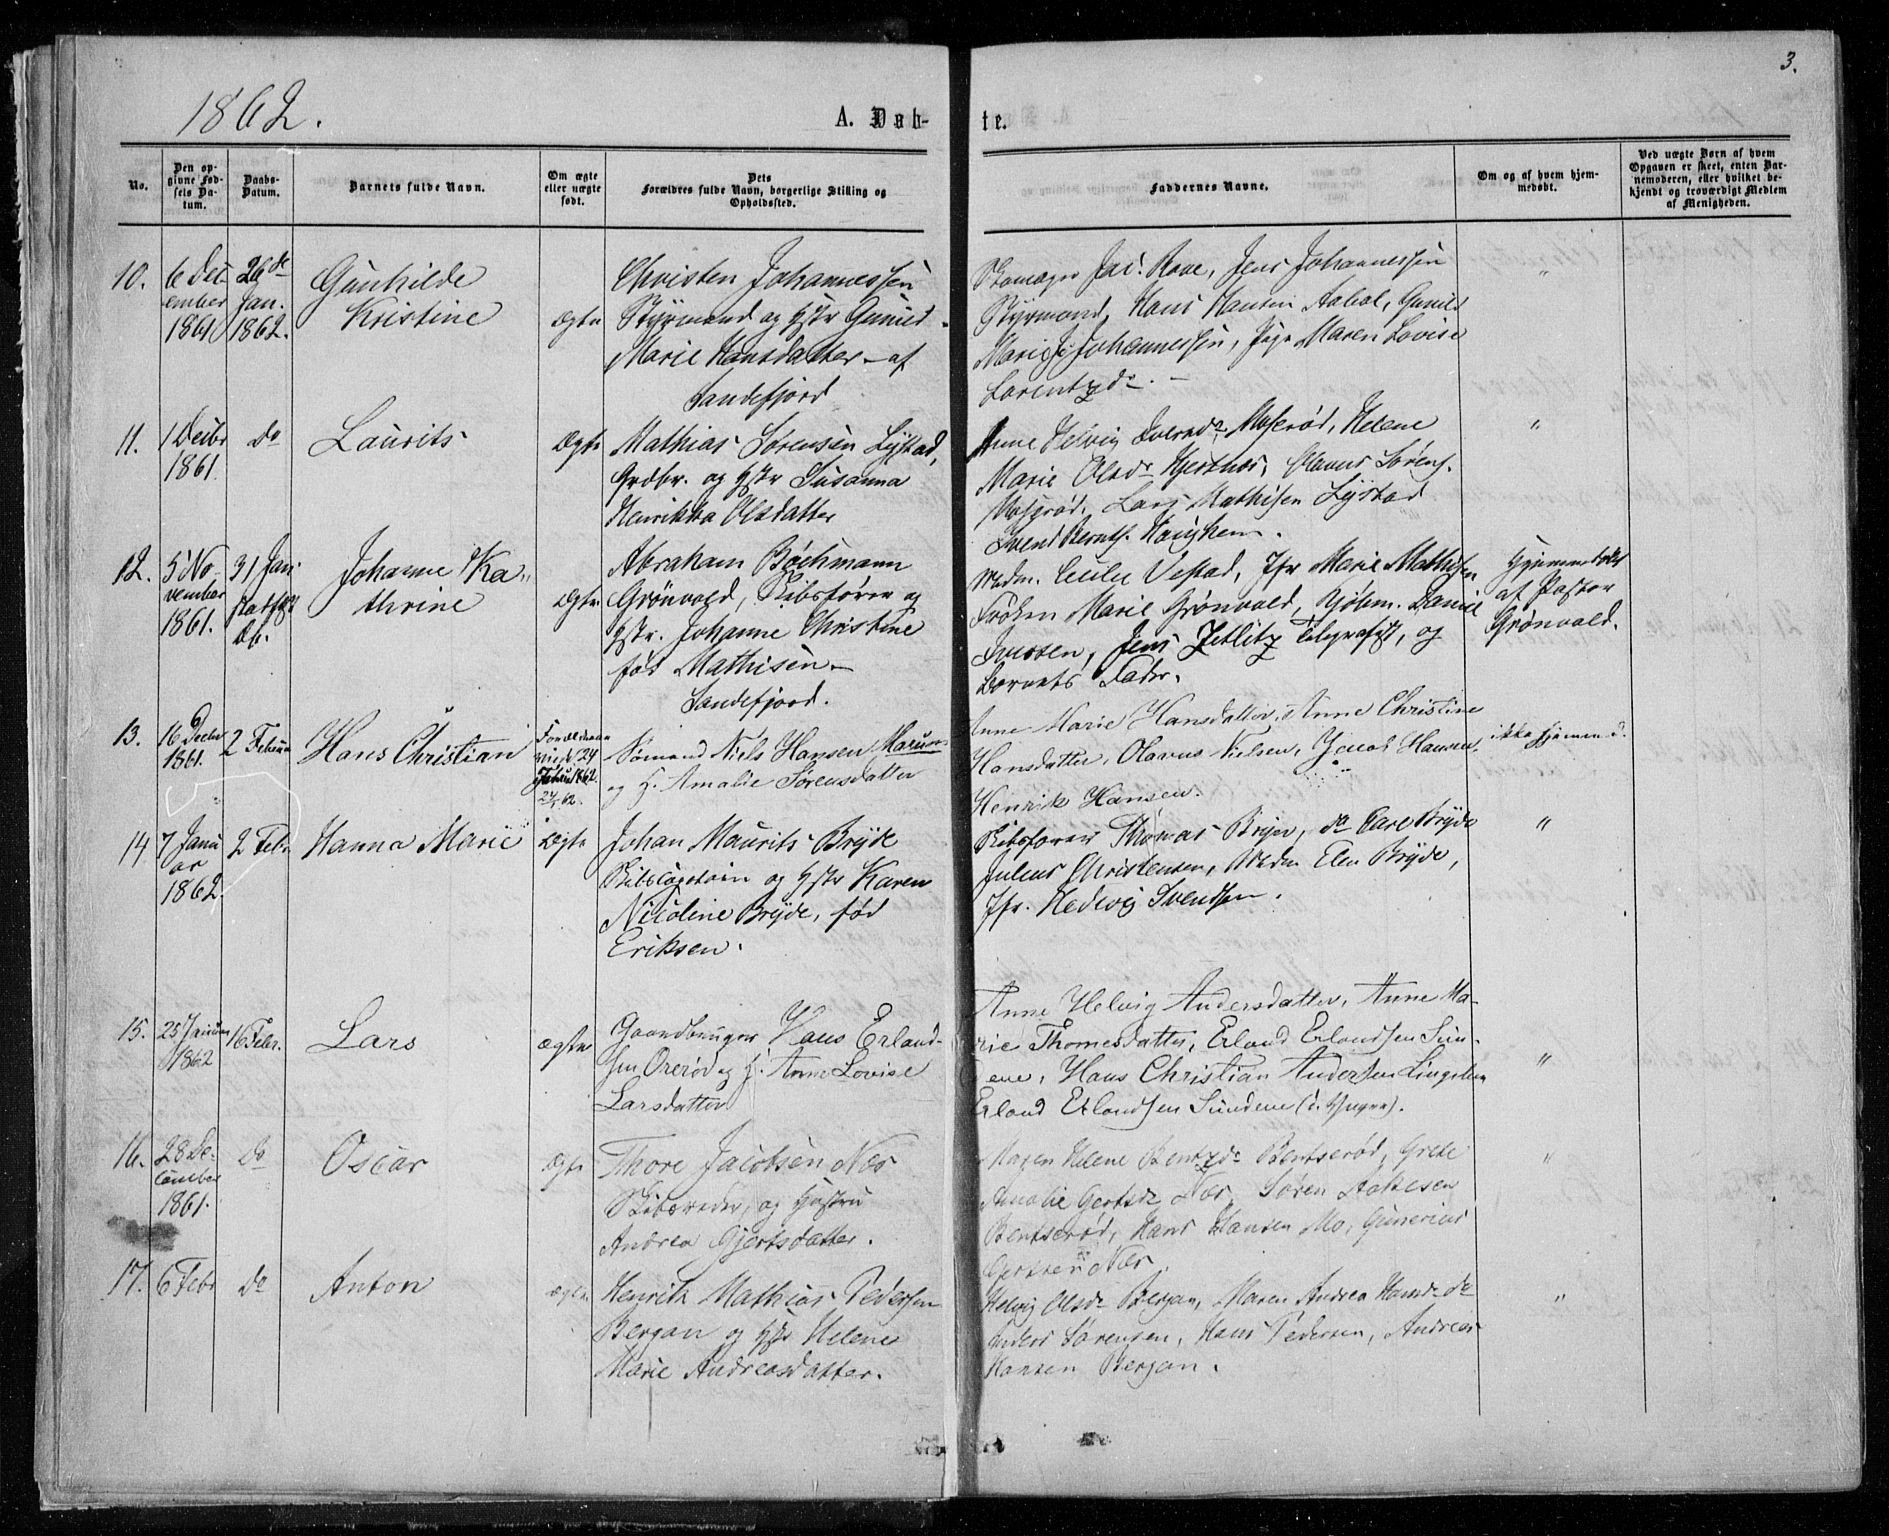 3.
1862.
A. Døb-
te.
No.
Den op-
givne Fød-
sels Da-
tum.
Daabs-
Datum.
Barnets fulde Navn.
Om ægte
eller uægte
født.
Dets
Forældres fulde Navn, borgerlige Stilling og
Opholdssted.
Faddernes Navne.
Om og af hvem hjem-
medøbt.
Ved uægte Børn af hvem
Opgaven er skeet, enten Bar-
nemoderen, eller hvilket be-
kjendt og troværdigt Medlem
af Menigheden.
10.
6 Dec
ember
1861
26de
Jan.
1862.
Gunhilde
Kristine
ægte
Christen Johannessen
Styrmand og Hstr Gunild
Marie Hansdatter - af
Sandefjord
Jac. Rove, Jens Johannessen
Styrmand, Hans Hansen Gunild
Marie Johannessen, Maren Lovise
Lorentzdr. -
"
11.
1 Decbr
1861.
Do
Laurits
Ægte
Mathias Sørensen Lystad,
Grdbr. og Hstr Susanna
Henrikka Olsdatter
Anne Helvig Moserød, Helene
Marie Olsdr Hjertnes, Olavus Sørens.
Moserød, Lars Mathisen Lystad
Svend Bernts. Haughem.
"
12.
5 No-
vember
1861.
31 Jan.
Johanne Ka-
thrine
Ægte
Abraham Bøchmann
Grønvold, Skibsfører og
Hstr. Johanne Christine
fød Mathisen -
Sandefjord.
Mdm. Cecilie Vestad, Jfr Marie Mathisen
Frøken Marie Grønvold, Kjøbm. Daniel
Iversen, Jens Zetlitz Telegrafist, og
Barnets Fader.
Hjemmedøbt
af Pastor
Grønvold.
13.
16 Decbr
1861.
2 Februar
Hans Christian
Sømand Niels Hansen Marum
og H. Amalie Sørensdatter
Anne Marie Hansdatter, Anne Christine
Hansdatter, Olavus Nielsen, Jacob Hansen,
Henrik Hansen.
ikke hjemmed.
14
7 Janu
ar
1862.
2 Febr
Hanna Marie
Ægte
Johan Maurits Bryde
og Hstr Karen
Nicoline Bryde, fød
Eriksen.
Skibsfører Thomas Bryde, do Carl Bryde
Julius Christensen, Mdm Elen Bryde,
Jfr. Hedevig Svendsen.
"
15.
25 Januar
1862
16 Febr.
Lars
ægte
Gaardbruger Hans Erland-
sen Orerød og H. Anne Lovise
Larsdatter
Anne Helvig Andersdatter, Anne Ma-
rie Thomesdatter, Erland Erlandsen Sun-
ene, Hans Christian Andersen Lingelem
Erland Erlandsen Sundene (d. Yngre).
"
16.
28 De-
cember
1861.
Do
Oscar
Ægte
Thore Jacobsen Næs
Skibsreder, og Hustru
Andrea Gjertsdatter.
Maren Helene Bentzdr Bentserød, Grete
Amalie Gertsdr Næs, Søren
Bentserød, Hans Hansen Mo, Gunerius
Gertsen Næs.
"
17.
6 Febr
Do
Anton
ægte
Henrik Mathias Pedersen
Bergan og Hstr Helene
Marie Andreasdatter.
Helvig Olsdr Bergan, Maren Andrea Hansdr do
Anders Sørensen, Hans Pedersen, Andreas
Hansen Bergan.
"